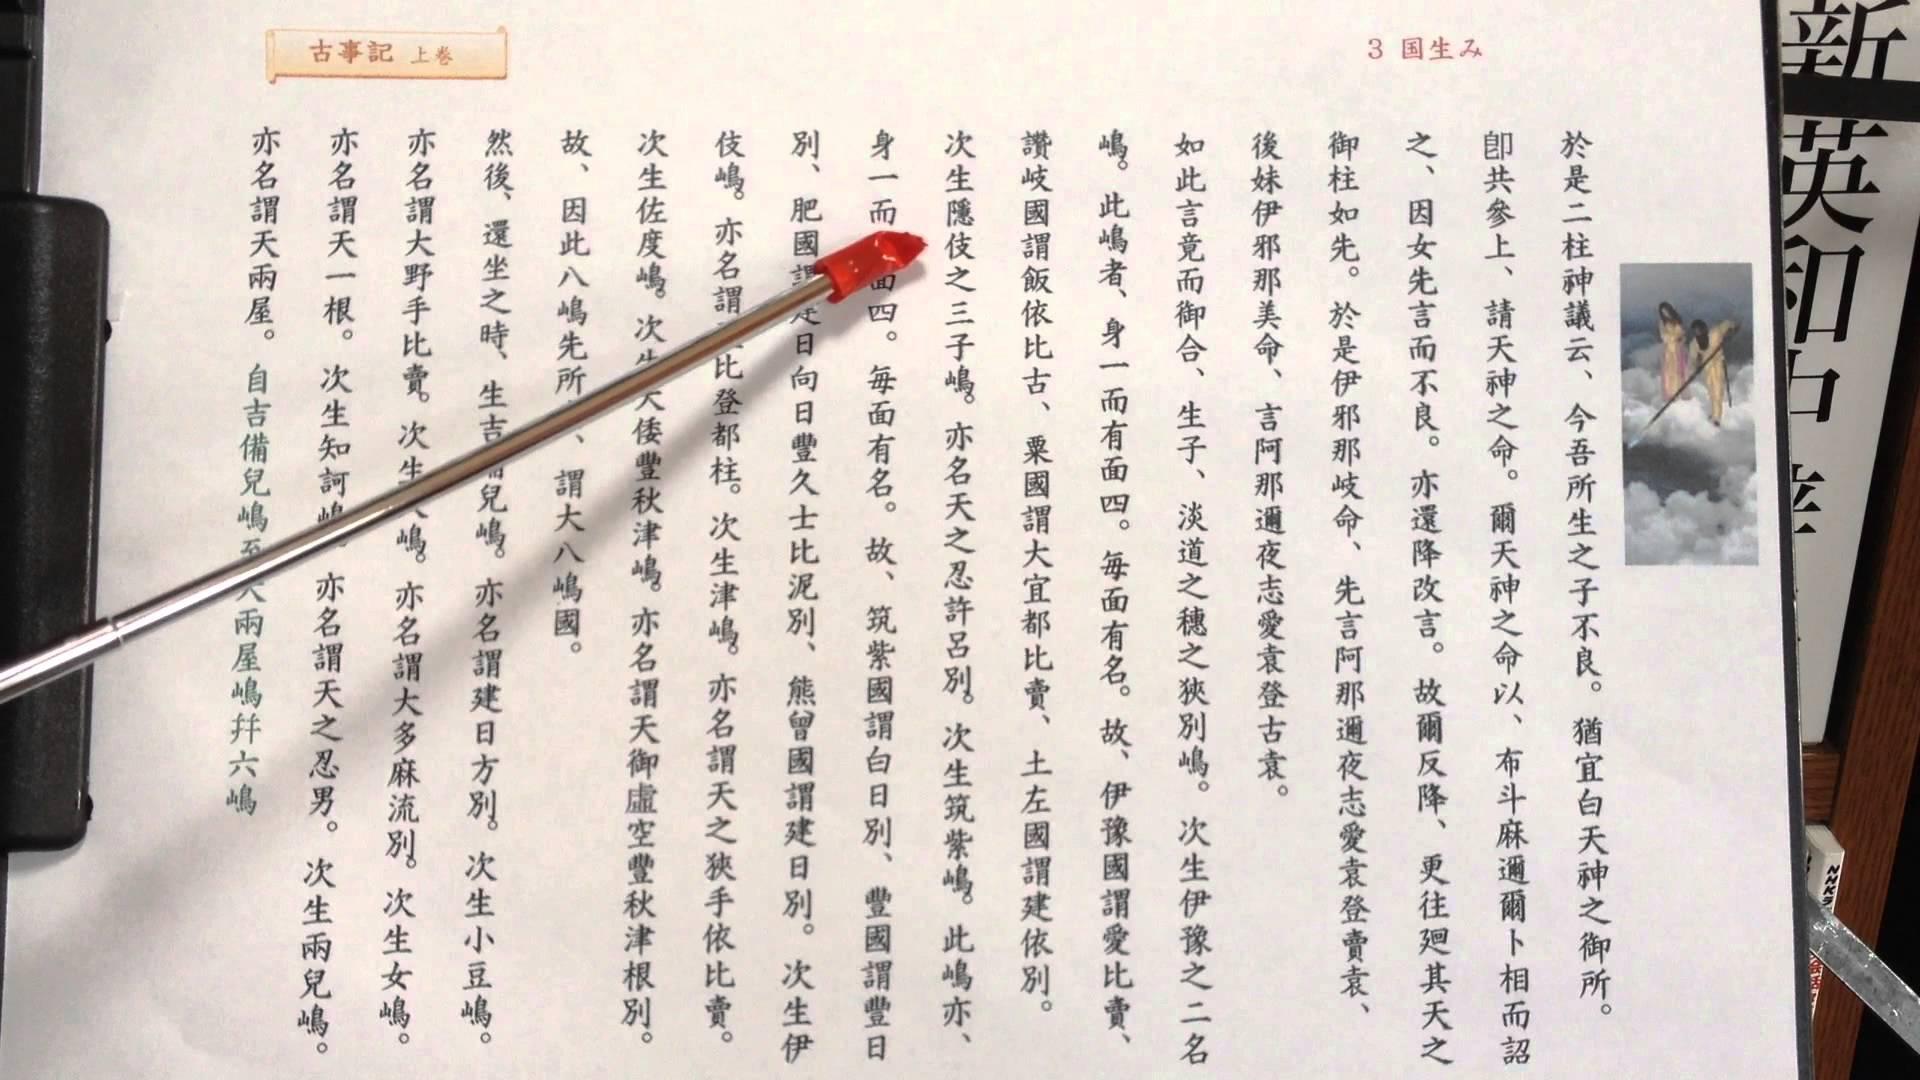 3 国生み
古事記 上巻
於是二柱神議云、今吾所生之子不良。猶宜白天神之御所。
卽共參上、請天神之命。爾天神之命以、布斗麻邇爾卜相而詔
之、因女先言而不良。亦還降改言。故爾反降、更往廻其天之
御柱如先。於是伊邪那岐命、先言阿那邇夜志愛袁登賣袁、
後妹伊邪那美命、言阿那邇夜志愛袁登古袁。
如此言竟而御合、生子、淡道之穗之狹別嶋。次生伊豫之二名
嶋。此嶋者、身一而有面四。每面有名。故、伊豫國謂愛比賣、
讚岐國謂飯依比古、粟國謂大宜都比賣、土左國謂建依別。
次生隱伎之三子嶋。亦名天之忍許呂別。次生筑紫嶋。此嶋亦、
身一而面四。每面有名。故、筑紫國謂白日別、豐國謂豐日
別、肥國謂建日向日豐久士比泥別、熊曾國謂建日別。次生伊
伎嶋。亦名謂比登都柱。次生津嶋。亦名謂天之狹手依比賣。
次生佐度嶋。次生大倭豐秋津嶋。亦名謂天御虛空豐秋津根別。
故、因此八嶋先所、謂大八嶋國。
然後、還坐之時、生吉兒嶋。亦名謂建日方別。次生小豆嶋。
亦名謂大野手比賣。次生嶋。亦名謂大多麻流別。次生女嶋。
亦名謂天一根。次生知訶嶋。亦名謂天之忍男。次生兩兒嶋。
亦名謂天兩屋。自吉備兒嶋至天兩屋嶋幷六嶋
新英和中
NHK